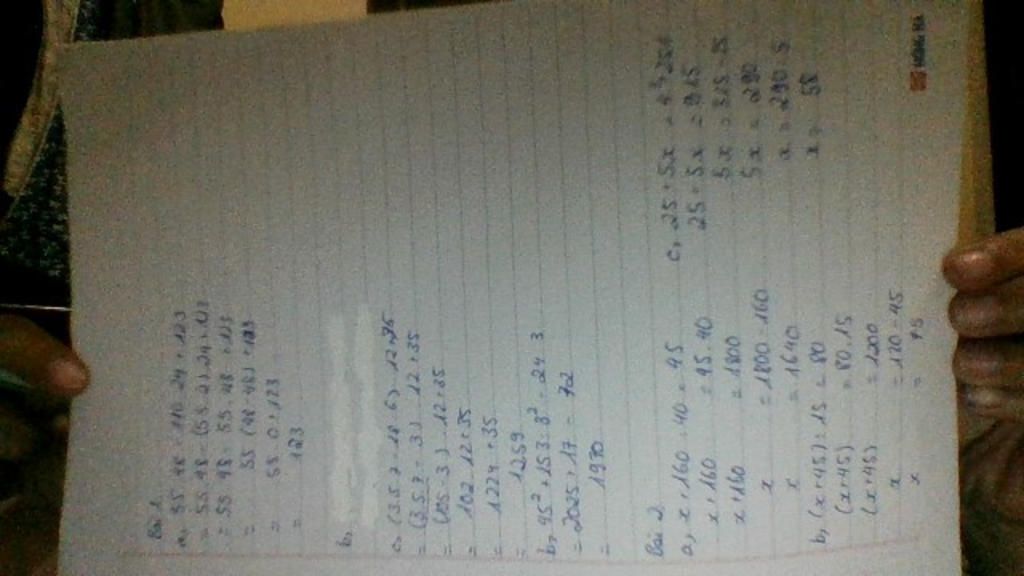 Bài 1
a, 55 . 48 - 110 . 24 + 123
= 55 . 48 - (55 . 2) . 24 + 123
= 55 . 48 - 55 . 48 + 123
= 55 (48 - 48) + 123
= 55 . 0 + 123
= 123
b.
c, (3.5.7 - 18 : 6) . 12 + 35
= (3.5.7 - 3) . 12 + 35
= (105 - 3) . 12 + 35
= 102 . 12 + 35
= 1224 + 35
= 1259
b, 45² + 153 : 3² - 24 . 3
= 2025 + 17 - 72
= 1970
Bài 2
a, x + 160 : 40 = 45
x + 160 = 45 . 40
x + 160 = 1800
x = 1800 - 160
x = 1640
b, (x + 45) : 15 = 80
(x + 45) = 80 . 15
(x + 45) = 1200
x = 120 - 45
x = 75
c, 25 + 5x =
25 + 5x = 315
5x = 315 - 25
5x = 290
x = 290 : 5
x = 58
HỒNG HÀ